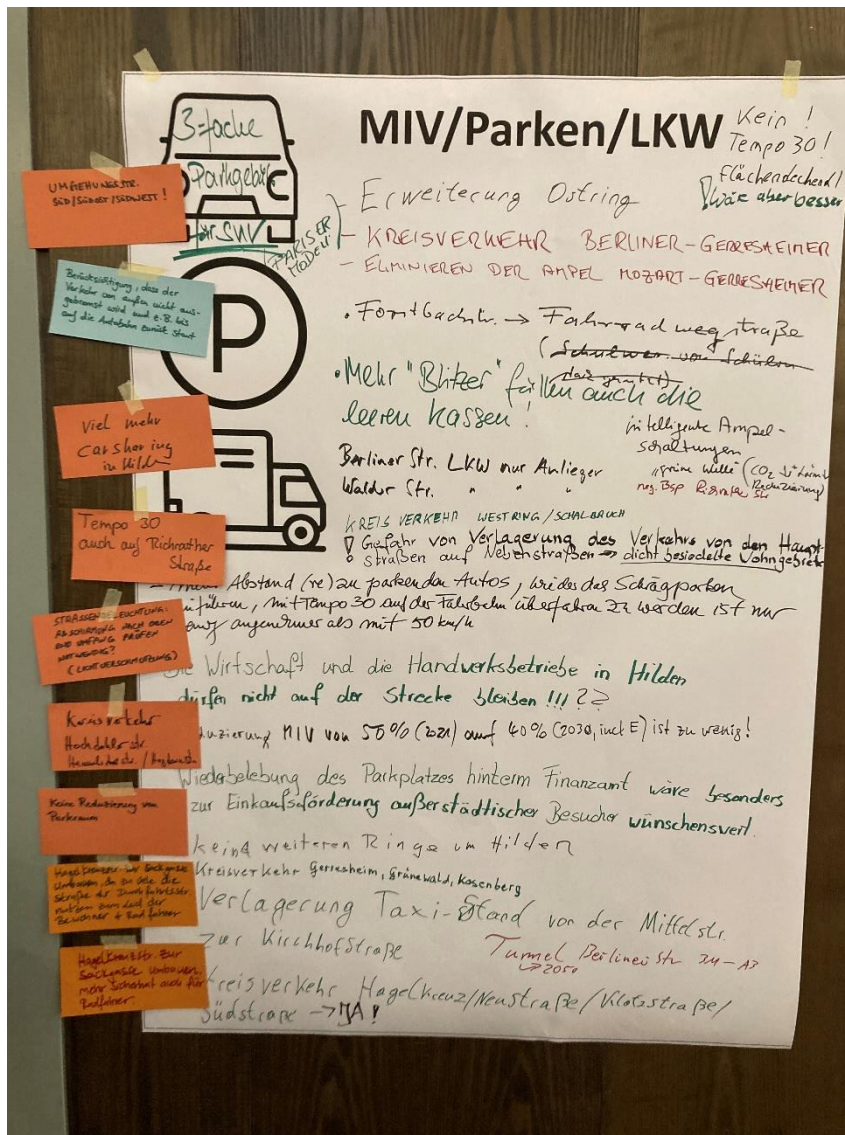 MIV/Parken/LKW
Kein !
Tempo 30 !
Flächendeckend !
wäre aber besser
3-fache
Parkgebühr
für SUV
PARISER
MODELL
- Erweiterung Ostring
- KREISVERKEHR BERLINER-GERRESHEIMER
- ELIMINIEREN DER AMPEL MOZART-GERRESHEIMER
P
• Forstbachstr. → Fahrradwegstraße
• Mehr "Blitzer" füllen auch die
leeren Kassen !
intelligente Ampel-
schaltungen
"grüne Welle" (CO₂
Reduzierung)
neg. Bsp Richrather Str
Berliner Str. LKW nur Anlieger
Walder Str. " " "
KREISVERKEHR WESTRING/SCHALBRUCH
! Gefahr von Verlagerung des Verkehrs von den Haupt-
straßen auf Nebenstraßen → dicht besiedelte Wohngebiete
Abstand (re) zu parkenden Autos, wieder das Schrägparken
einführen, mit Tempo 30 auf der Fahrbahn überfahren zu werden ist nur
wenig angenehmer als mit 50 km/h
Die Wirtschaft und die Handwerksbetriebe in Hilden
dürfen nicht auf der Strecke bleiben !!! ??
Reduzierung MIV von 50% (2021) auf 40% (2030, incl E) ist zu wenig!
Wiederbelebung des Parkplatzes hinterm Finanzamt wäre besonders
zur Einkaufsförderung außerstädtischer Besucher wünschenswert.
keine weiteren Ringe um Hilden
Kreisverkehr Gerresheim, Grünewald, Kosenberg
Verlagerung Taxi-Stand von der Mittelstr.
zur Kirchhofstraße
Tunnel Berliner Str 24 - A3
→ 2050
Kreisverkehr Hagelkreuz/Neustraße/Klotzstraße/
Südstraße → JA!
UMGEHUNGSSTR.
SÜD/SÜDOST/SÜDWEST !
Berücksichtigung, dass der
Verkehr von außen nicht aus-
gebremst wird und z.B. bis
auf die Autobahn zurück staut
Viel mehr
carsharing
in Hilden
Tempo 30
auch auf Richrather
Straße
STRASSENBELEUCHTUNG:
ABSCHIRMUNG NACH OBEN
UND UMFANG PRÜFEN
NOTWENDIG?
(LICHTVERSCHMUTZUNG)
Kreisverkehr
Hochdahler
str.
Keine Reduzierung von
Parkraum
Hagelkreuzstr. zur Sackgasse
umbauen, da zu viele die
Straße als Durchfahrtsstr.
nutzen zum Leid der
Bewohner + Radfahrer
Hagelkreuzstr. zur
Sackgasse umbauen,
mehr Sicherheit auch für
Radfahrer.